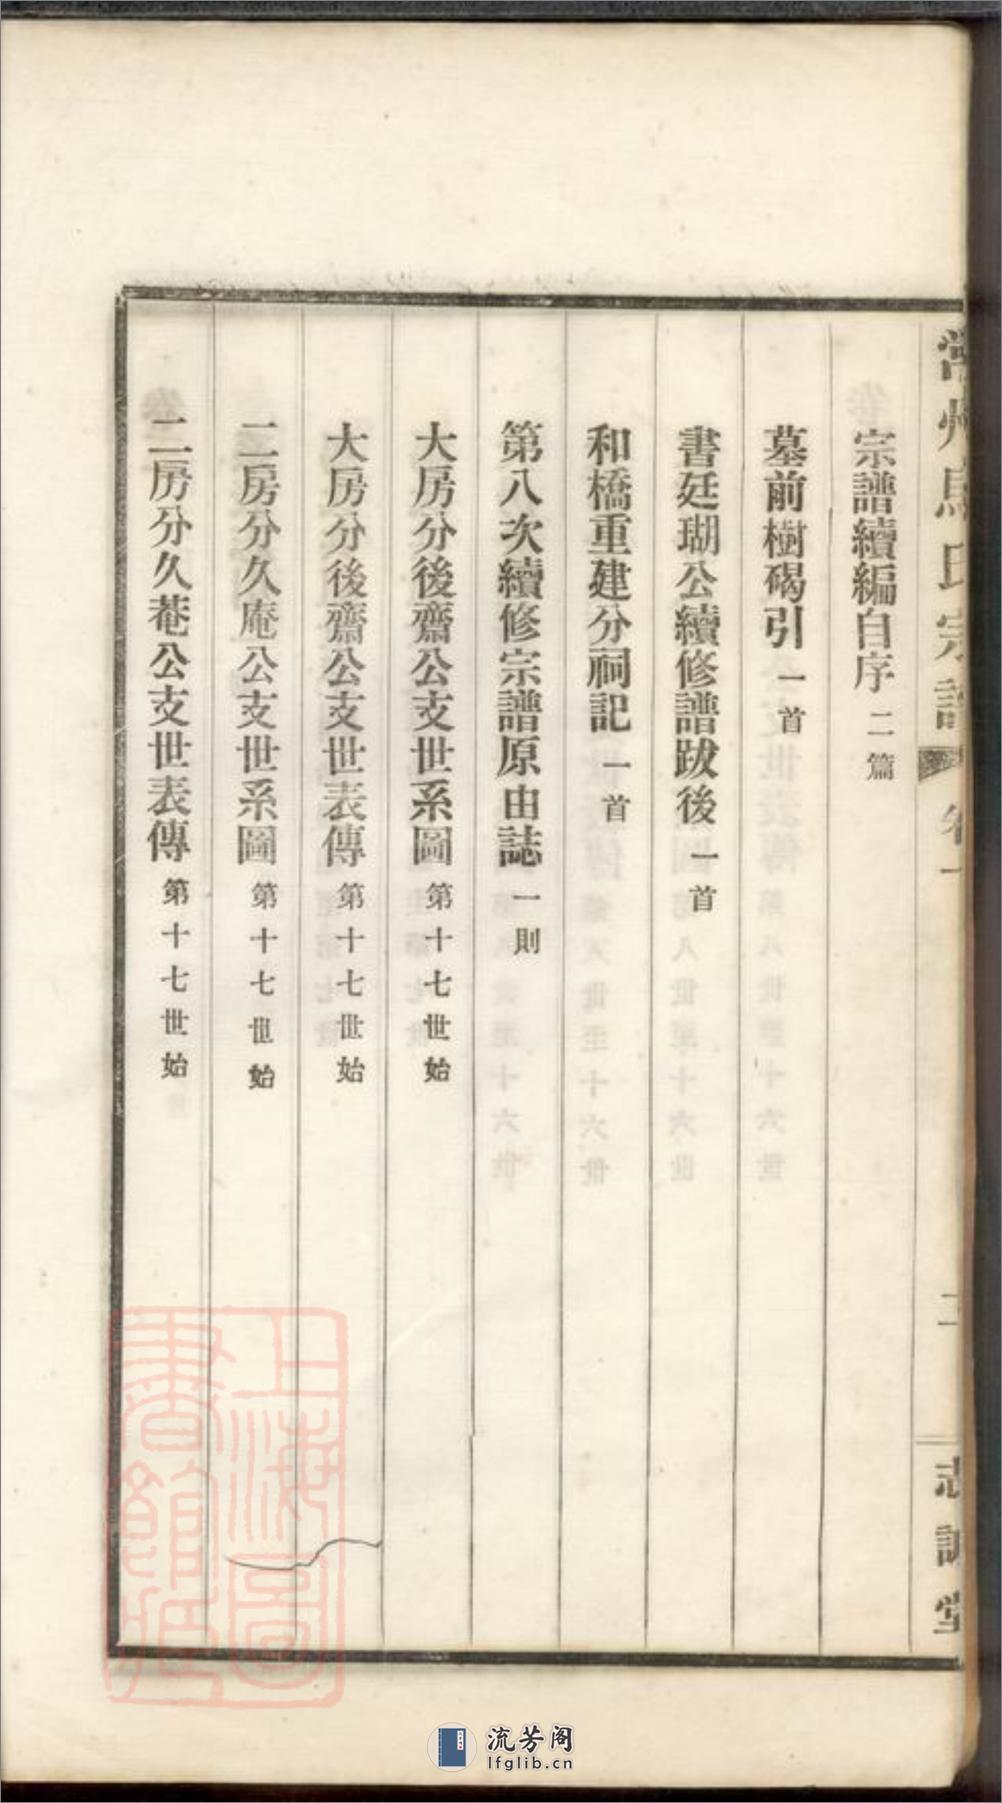 常州馬氏宗譜 卷一 二 志誠堂
宗譜續編自序 二篇
墓前樹碣引 一首
書廷瑚公續修譜跋後 一首
和橋重建分祠記 一首
第八次續修宗譜原由誌 一則
大房分後齋公支世系圖 第十七世始
大房分後齋公支世表傳 第十七世始
二房分久庵公支世系圖 第十七世始
二房分久菴公支世表傳 第十七世始
上海圖書館藏
流芳阁
lfglib.cn